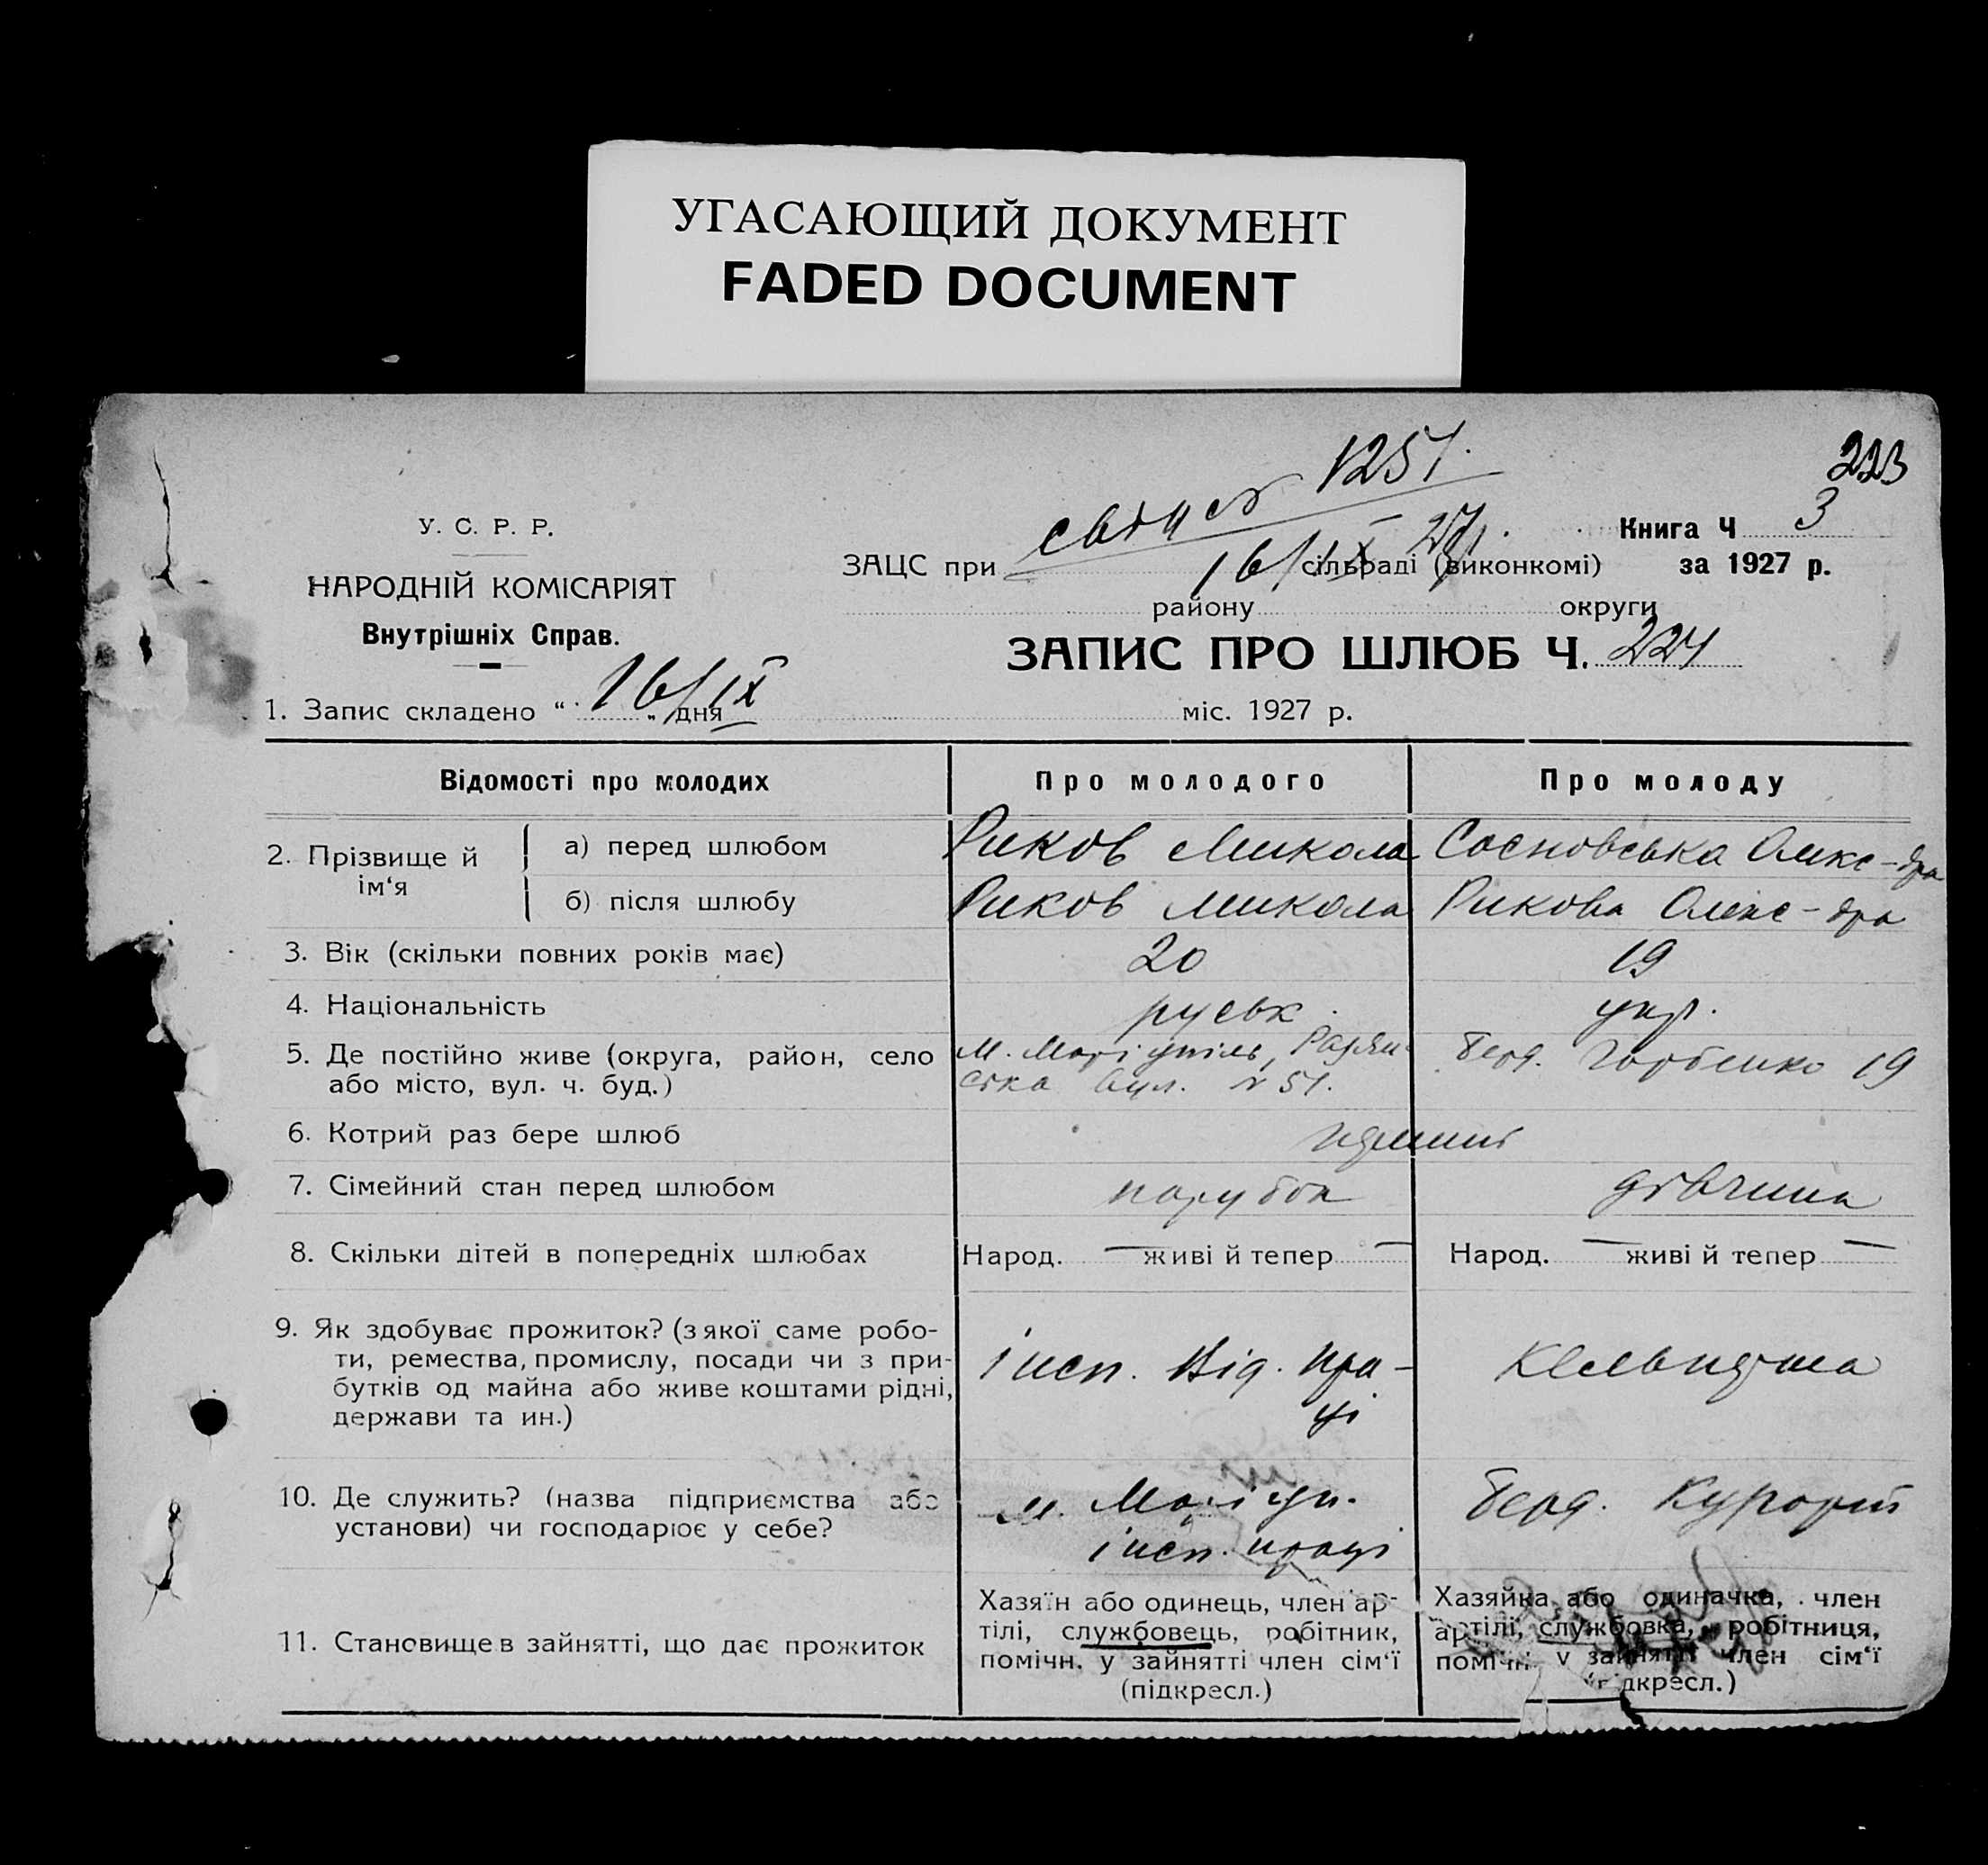 УГАСАЮЩИЙ ДОКУМЕНТ
FADED DOCUMENT
223
1251.
У. С. Р. Р.
Книга Ч 3
ЗАЦС при 16/IX 27 р. сільраді (виконкомі)
за 1927 р.
НАРОДНІЙ КОМІСАРІЯТ
району округи
Внутрішніх Справ.
ЗАПИС ПРО ШЛЮБ Ч. 224
1. Запис складено “ 16/IX „ дня міс. 1927 р.
Відомості про молодих Про молодого Про молоду
2. Прізвище й ім‘я
а) перед шлюбом Риков Микола Сосновська Олекс-дра
б) після шлюбу Риков Микола Рикова Олекс-дра
3. Вік (скільки повних років має) 20 19
4. Національність руськ. укр.
5. Де постійно живе (округа, район, село
або місто, вул. ч. буд.)
м. Маріупіль, Радян-
ська вул. № 51.
Берд. Горбенко 19
6. Котрий раз бере шлюб
7. Сімейний стан перед шлюбом парубок дівчина
8. Скільки дітей в попередніх шлюбах Народ. — живі й тепер — Народ. — живі й тепер —
9. Як здобуває прожиток? (з якої саме робо-
ти, ремества, промислу, посади чи з при-
бутків од майна або живе коштами рідні,
держави та ин.)
інсп. Від. Пра-
ці
10. Де служить? (назва підприємства або
установи) чи господарює у себе?
м. Маріуп.
інсп. праці
Берд. Курорт
11. Становище в зайнятті, що дає прожиток
Хазяїн або одинець, член ар-
тілі, службовець, робітник,
помічн. у зайнятті член сім‘ї
(підкресл.)
Хазяйка або одиначка, член
артілі, службовка, робітниця,
помічн. у зайнятті член сім‘ї
(підкресл.)